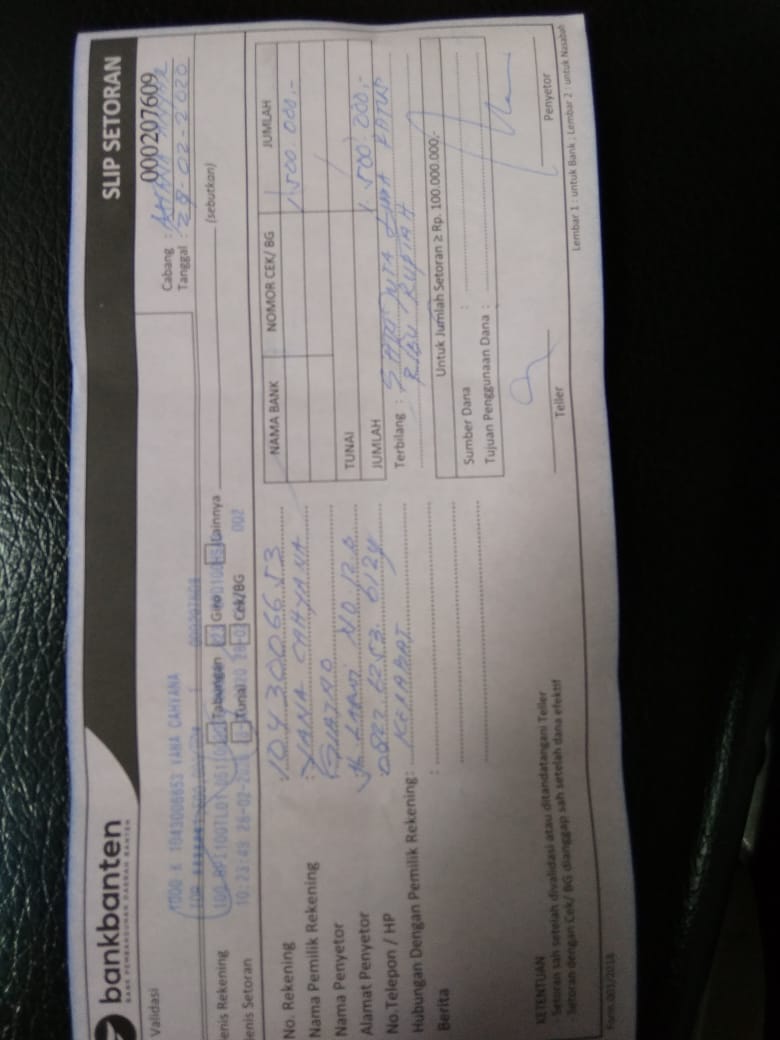 bankbanten
BANK PEMBANGUNAN DAERAH BANTEN
SLIP SETORAN
000207609
Cabang :
Tanggal : 28-02-2020
Validasi
1043006653 YANA CAHYANA
10:23:49 002
enis Rekening Tabungan Giro Lainnya (sebutkan)
enis Setoran Tunai Cek/BG
No. Rekening 1043006653
Nama Pemilik Rekening : YANA CAHYANA
Nama Penyetor
Alamat Penyetor
No.Telepon / HP
Hubungan Dengan Pemilik Rekening: KERABAT
Berita :
NAMA BANK NOMOR CEK/ BG JUMLAH
1.500.000,-
TUNAI
JUMLAH 1.500.000,-
Terbilang : SATU JUTA LIMA RATUS
RIBU RUPIAH
Untuk Jumlah Setoran ≥ Rp. 100.000.000,-
Sumber Dana :
Tujuan Penggunaan Dana :
KETENTUAN
- Setoran sah setelah divalidasi atau ditandatangani Teller
- Setoran dengan Cek/ BG dianggap sah setelah dana efektif
Teller Penyetor
Form.001/2018
Lembar 1 : untuk Bank ; Lembar 2 : untuk Nasabah